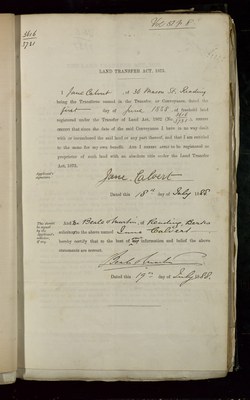 Vol. 159. 8
LAND TRANSFER ACT, 1875.
I Jane Calvert of 32 Manor St. Reading
being the Transferee named in the Transfer, or Conveyance dated the
first day of June 1888 of freehold land
registered under the Transfer of Land Act, 1862 (No. ), assure
ments that since the date of the said Conveyance I have in no way dealt
with or incumbered the said land or any part thereof and that I am entitled
to the same for my own benefit. And I request to be registered as
proprietor of such land with an absolute title under the Land Transfer
Act, 1875.
Applicant's
signature.
Jane Calvert
Dated this 18th day of July 1888.
This should
be signed
by the
Applicant's
solicitor,
if any.
And We Beale & Martin of Reading, Berks
solicitors to the above named Jane Calvert
hereby certify that to the best of our information and belief the above
statements are correct.
Beale & Martin
Dated this 19th day of July 1888.